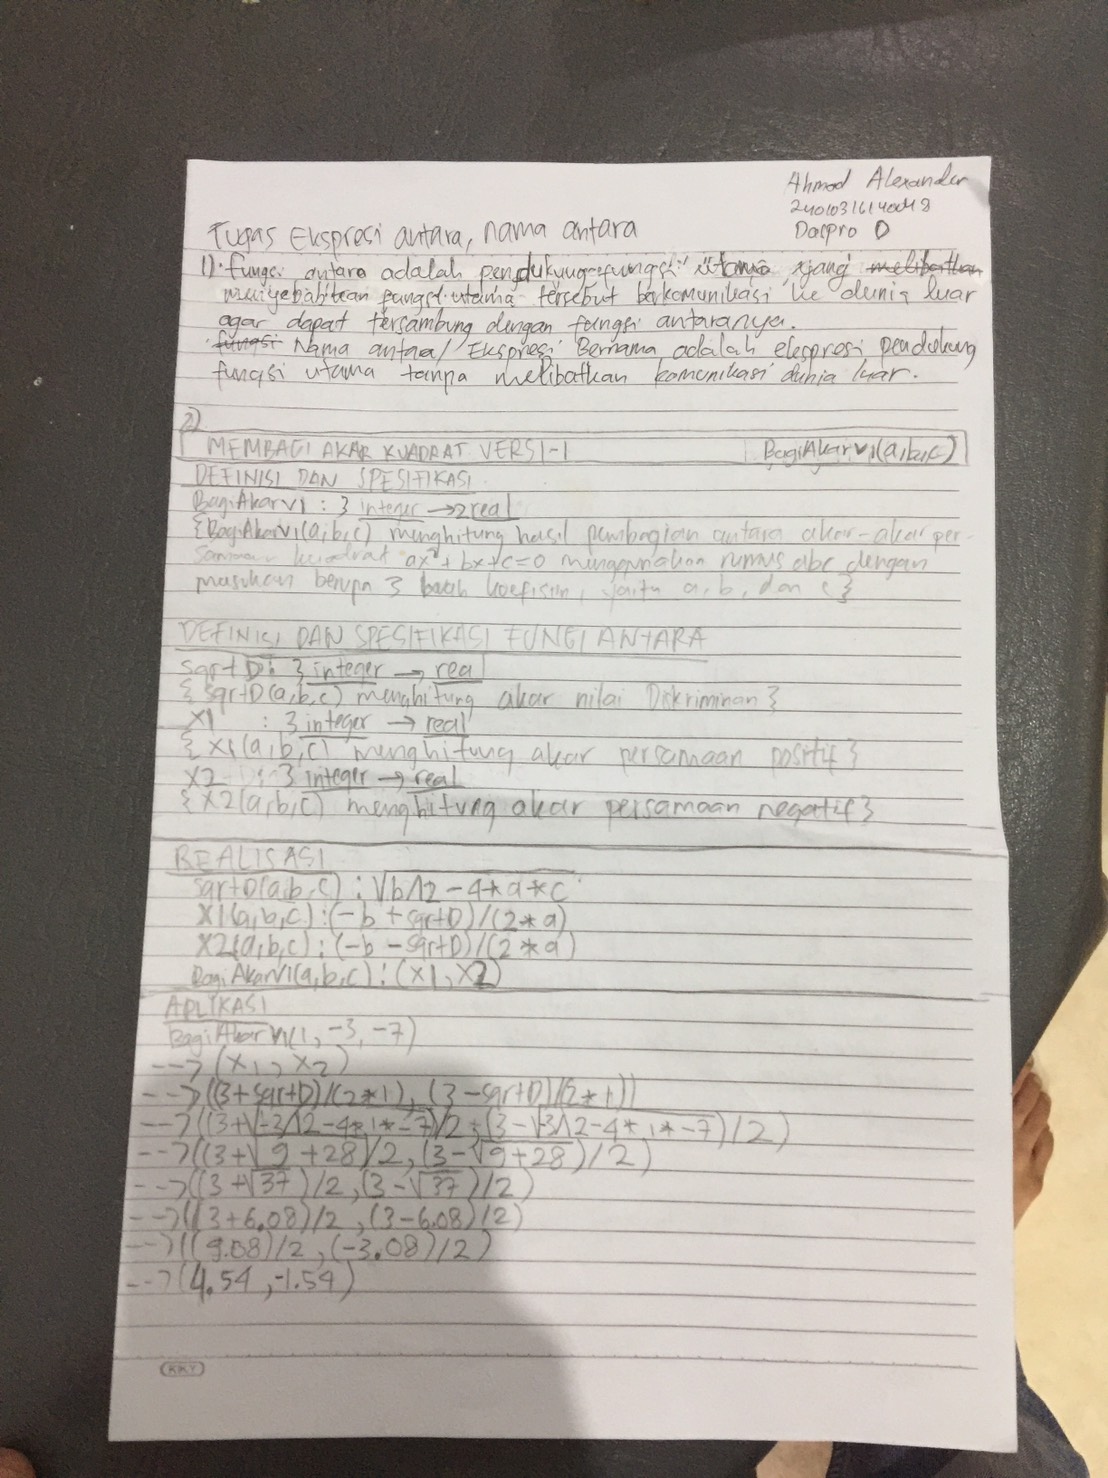 Ahmad Alexander
Daspro D
Tugas Ekspresi antara, nama antara
1). fungsi antara adalah pendukung fungsi utama yang melibatkan
menyebabkan fungsi utama tersebut berkomunikasi ke dunia luar
agar dapat tersambung dengan fungsi antaranya.
fungsi Nama antara/ Ekspresi Bernama adalah ekspresi pendukung
fungsi utama tanpa melibatkan komunikasi dunia luar.
2)
MEMBAGI AKAR KUADRAT VERSI-1 BagiAkarV1(a,b,c)
DEFINISI DAN SPESIFIKASI
BagiAkarV1 : 3 integer → 2 real
{BagiAkarV1(a,b,c) menghitung hasil pembagian antara akar-akar per-
samaan kuadrat ax²+bx+c=0 menggunakan rumus abc dengan
masukan berupa 3 buah koefisien, yaitu a, b, dan c}
DEFINISI DAN SPESIFIKASI FUNGI ANTARA
sqrtD: 3 integer → real
{sqrtD(a,b,c) menghitung akar nilai Diskriminan}
X1 : 3 integer → real
{X1(a,b,c) menghitung akar persamaan positif}
X2 : 3 integer → real
{X2(a,b,c) menghitung akar persamaan negatif}
REALISASI
sqrtD(a,b,c) : √b^2-4*a*c
X1(a,b,c) : (-b+sqrtD)/(2*a)
X2(a,b,c) : (-b-sqrtD)/(2*a)
BagiAkarV1(a,b,c) : (X1, X2)
APLIKASI
BagiAkarV1(1, -3, -7)
--> (X1, X2)
--> ((3+sqrtD)/(2*1), (3-sqrtD)/(2*1))
--> ((3+√-3^2-4*1*-7)/2, (3-√-3^2-4*1*-7)/2)
--> ((3+√9+28)/2, (3-√9+28)/2)
--> ((3+√37)/2, (3-√37)/2)
--> ((3+6.08)/2, (3-6.08)/2)
--> ((9.08)/2, (-3.08)/2)
--> (4.54, -1.54)
KKY